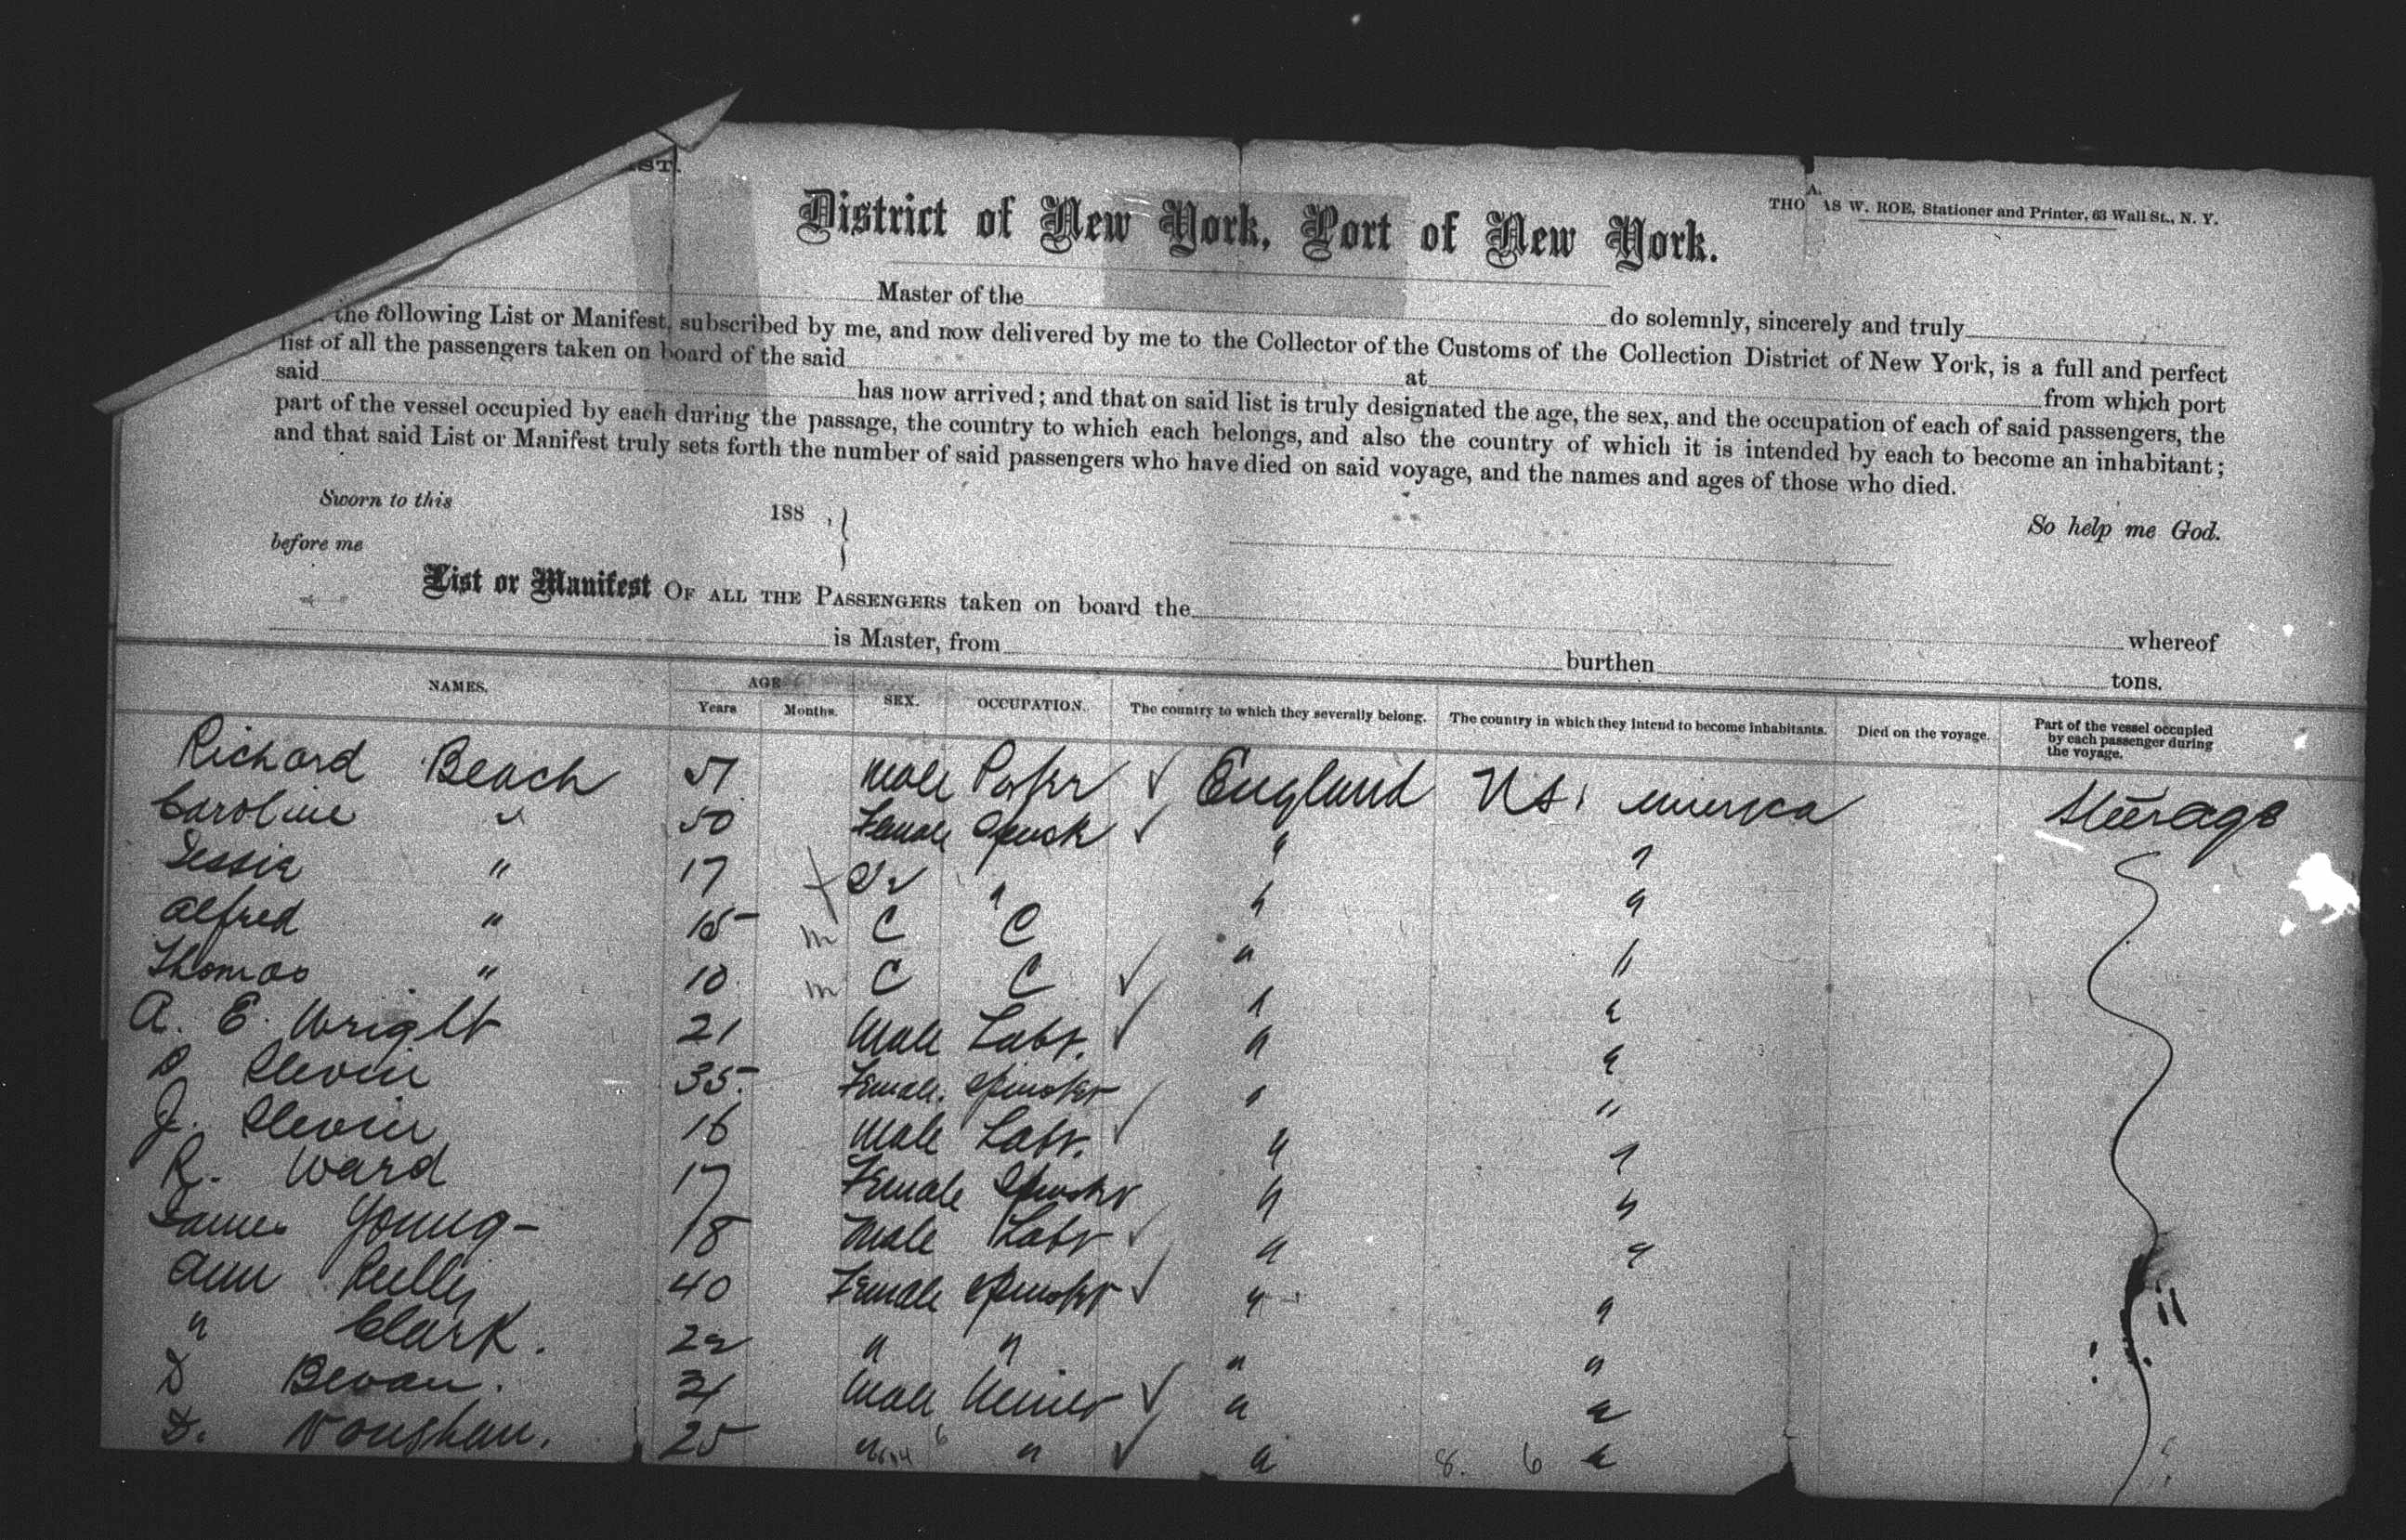 District of New York, Port of New York.
THOMAS W. ROE, Stationer and Printer, 63 Wall St., N. Y.
Master of the do solemnly, sincerely and truly
the following List or Manifest, subscribed by me, and now delivered by me to the Collector of the Customs of the Collection District of New York, is a full and perfect
list of all the passengers taken on board of the said at from which port
said has now arrived; and that on said list is truly designated the age, the sex, and the occupation of each of said passengers, the
part of the vessel occupied by each during the passage, the country to which each belongs, and also the country of which it is intended by each to become an inhabitant;
and that said List or Manifest truly sets forth the number of said passengers who have died on said voyage, and the names and ages of those who died.
Sworn to this 188 ,
So help me God.
before me
List or Manifest OF ALL THE PASSENGERS taken on board the whereof
is Master, from burthen tons.
NAMES. AGE Years Months. SEX. OCCUPATION. The country to which they severally belong. The country in which they intend to become inhabitants. Died on the voyage. Part of the vessel occupied by each passenger during the voyage.
Richard Beach 51 Male England U S America Steerage
Caroline " 50 Female " "
Jessie " 17 " " "
Alfred " 15 m C C " "
Thomas " 10 m C C " "
A. E. Wright 21 Male Labr. " "
Slevin 35 Female. Spinster " "
J. Slevin 16 Male Labr. " "
R. Ward 17 Female Spinster " "
James Young 18 Male Labr " "
Ann Reilly 40 Female Spinster " "
" Clark. 22 " " " "
D Bevan. 31 Male Miner " "
D. Voughan. 25 " " " 8. 6 "